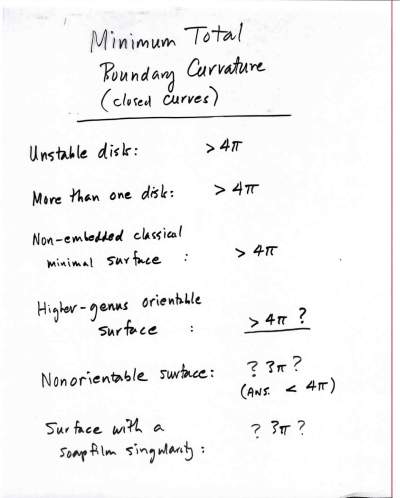 Minimum Total
Boundary Curvature
(closed curves)
Unstable disk: > 4π
More than one disk: > 4π
Non-embedded classical
minimal surface : > 4π
Higher-genus orientable
surface : > 4π ?
Nonorientable surface: ? 3π ?
(Ans. < 4π)
Surface with a
soapfilm singularity: ? 3π ?